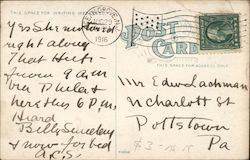 THIS SPACE FOR WRITING MESSAGES
POST CARD
THIS SPACE FOR ADDRESS ONLY
1916
Yes She
right along
That
from 9 am
via Phila &
here this 6 P.M.
Heard
Billy Sunday
& now for bed
Mr Edw Lachman
N Charlott St
Pottstown
Pa